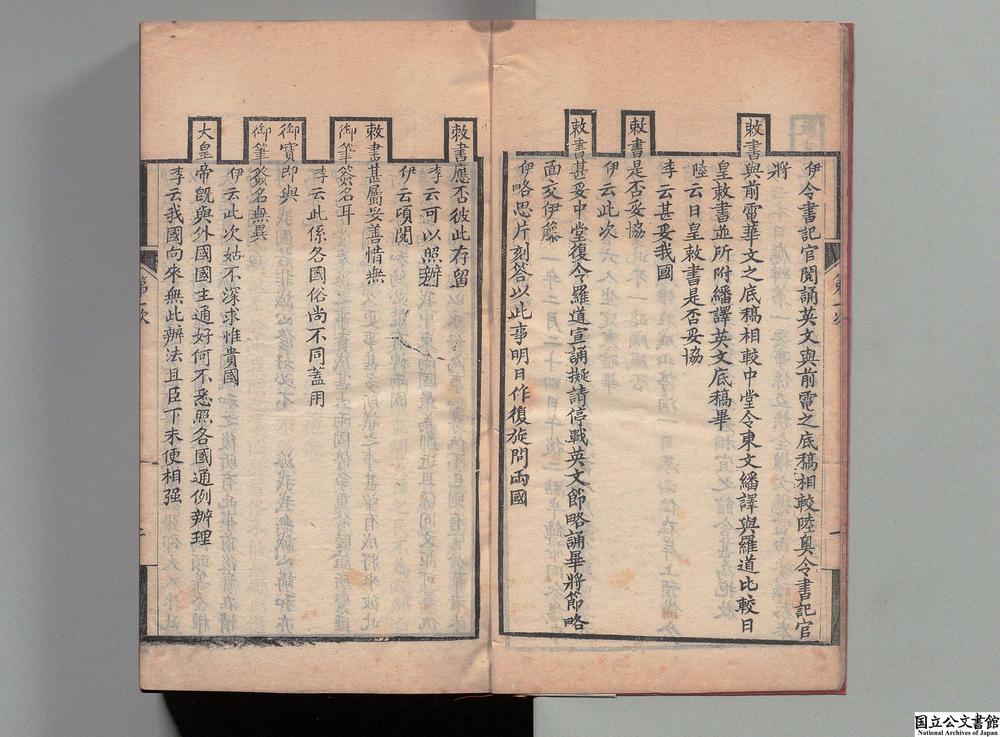 伊令書記官閱誦英文與前電之底稿相較陸奧令書記官
將
敕書與前電華文之底稿相較中堂令東文繙譯與羅道比較日
皇敕書並所附繙譯英文底稿畢
陸云日皇敕書是否妥協
李云甚妥我國
敕書是否妥協
伊云此次
敕書甚妥中堂復令羅道宣誦擬請停戰英文節略誦畢將節略
面交伊藤
伊略思片刻答以此事明日作復旋問兩國
第一次
敕書應否彼此存留
李云可以照辦
伊云頃閱
敕書甚屬妥善惜無
御筆簽名耳
李云此係各國俗尚不同蓋用
御寶即與
御筆簽名無異
伊云此次姑不深求惟貴國
大皇帝既與外國國主通好何不悉照各國通例辦理
李云我國向來無此辦法且臣下未便相强
国立公文書館
National Archives of Japan